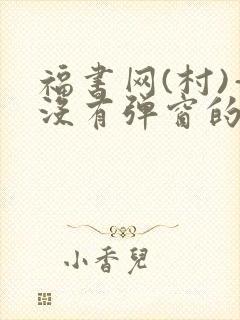 福书网(村)-
没有弹窗的
小香兒